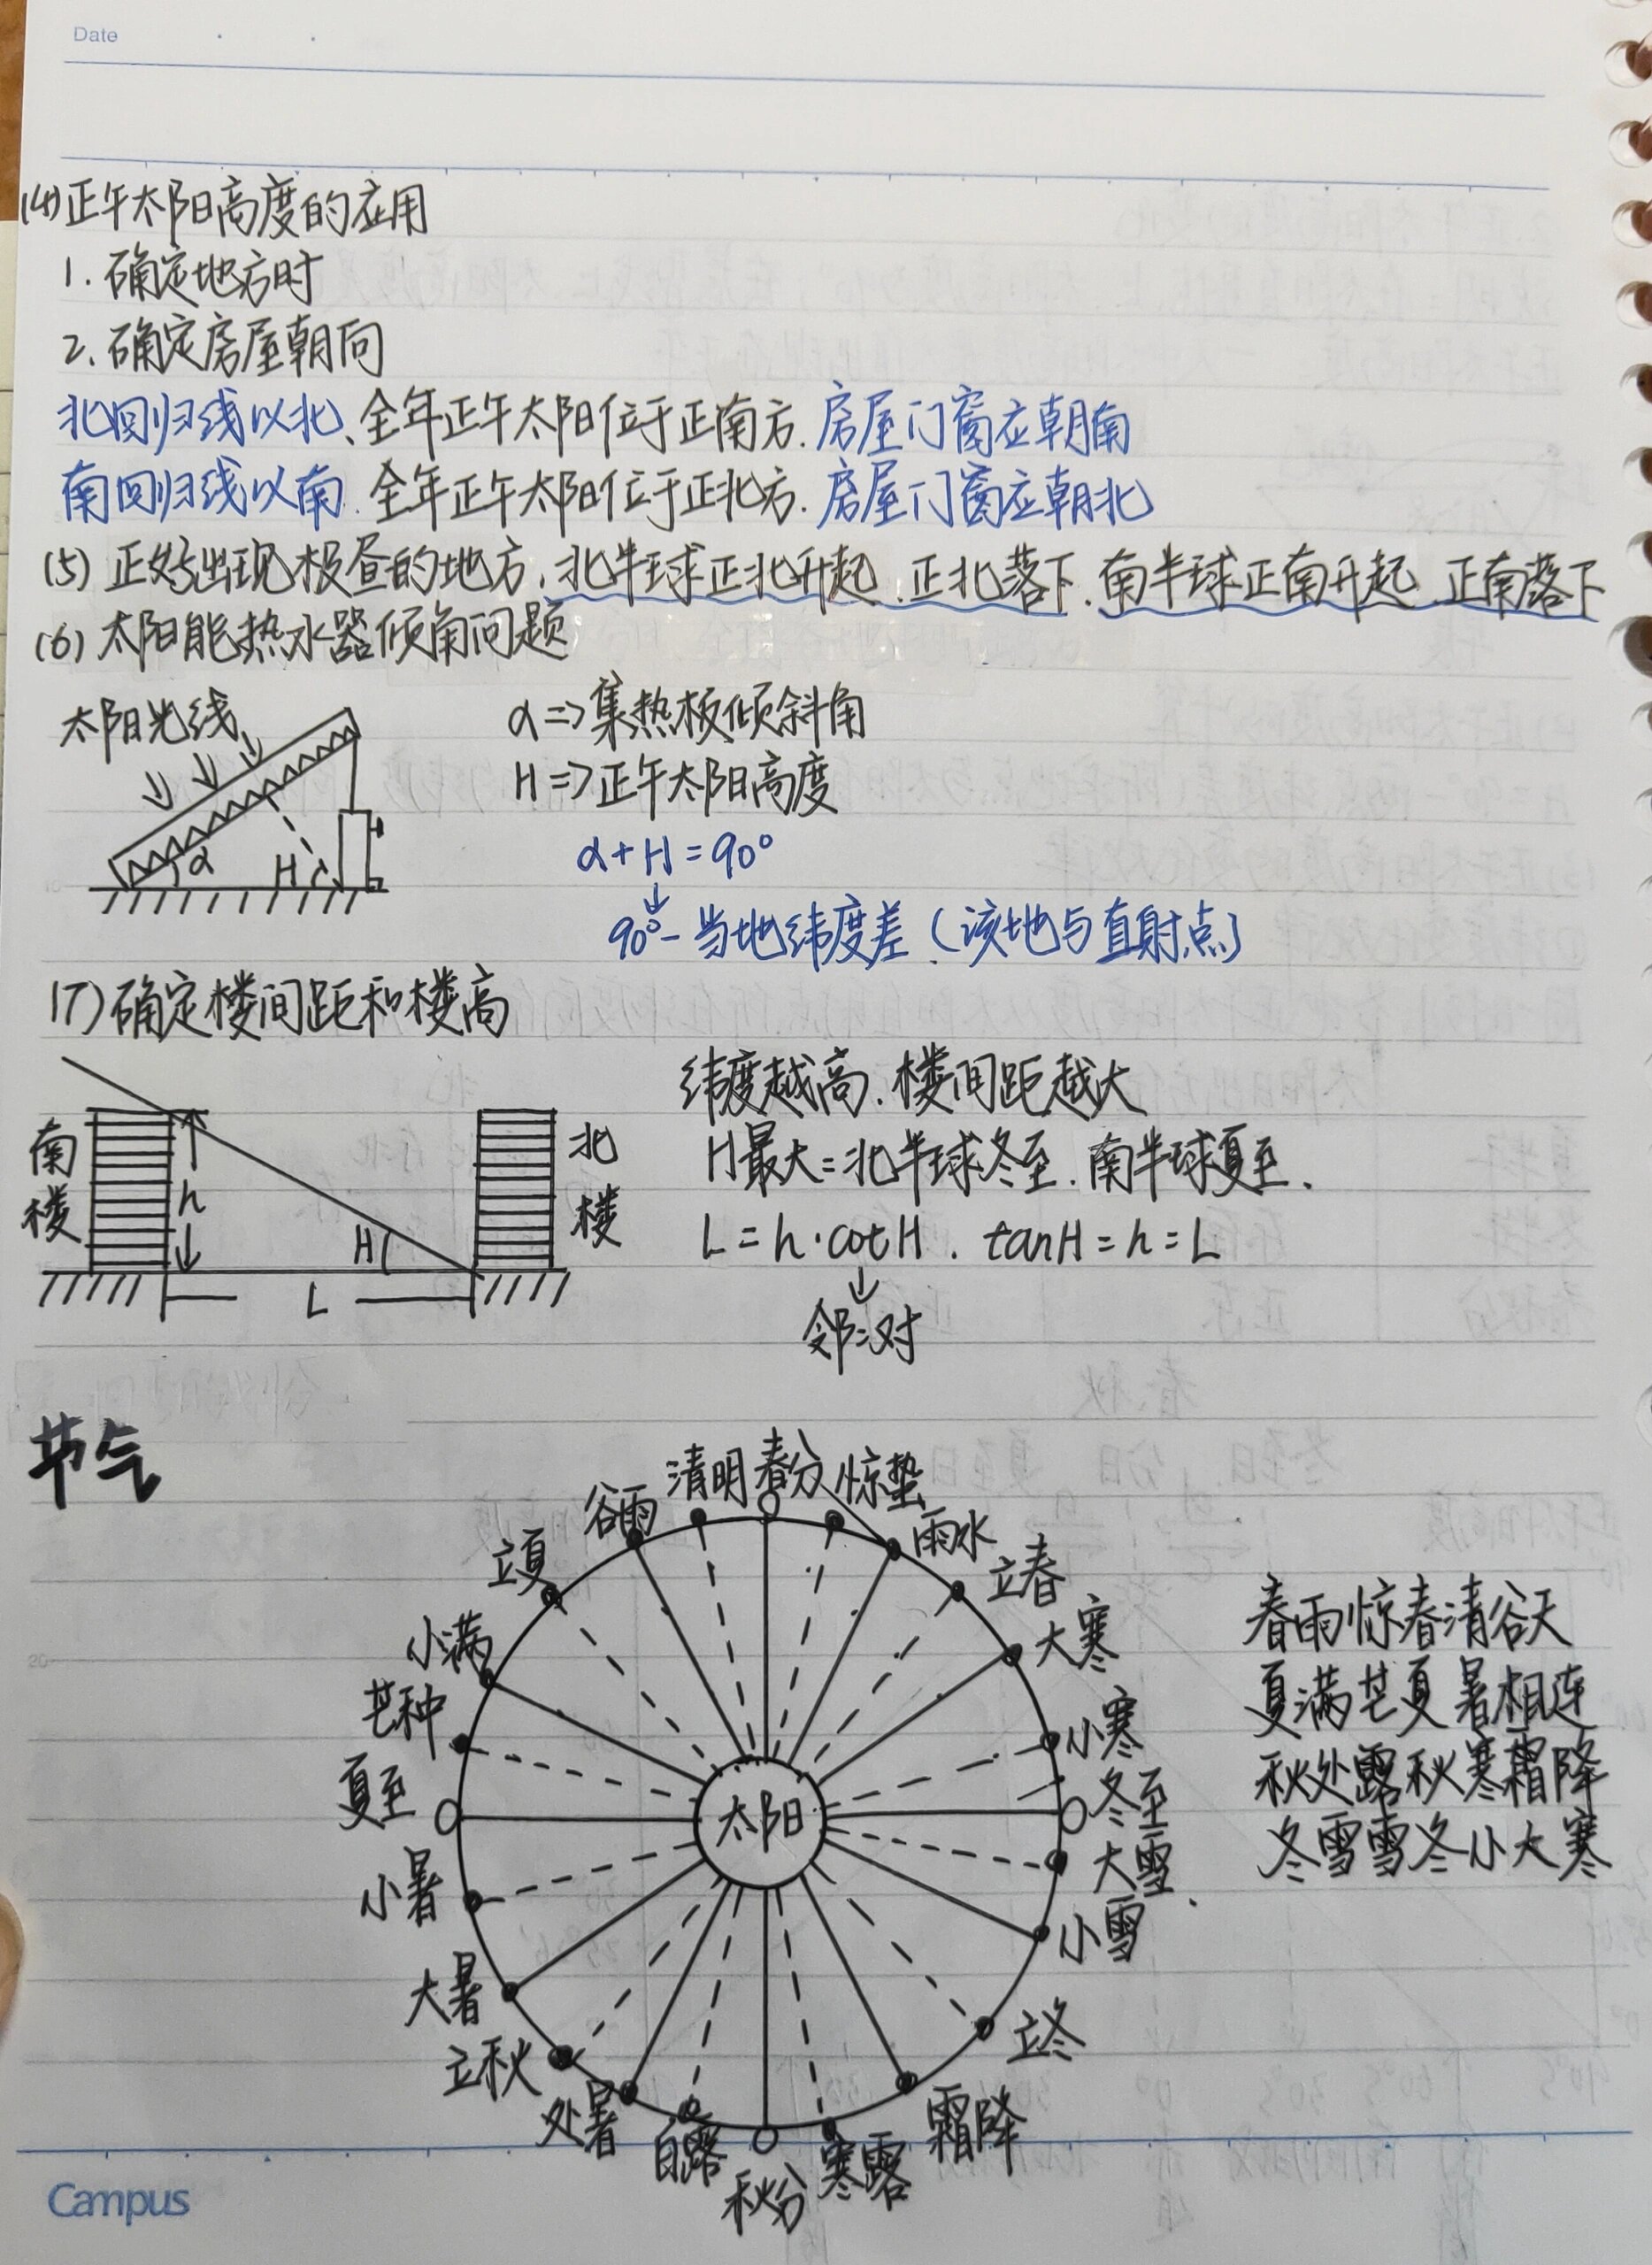 Date
(4)正午太阳高度的应用
1.确定地方时
2.确定房屋朝向
北回归线以北、全年正午太阳位于正南方.房屋门窗应朝南
南回归线以南.全年正午太阳位于正北方.房屋门窗应朝北
(5)正好出现极昼的地方,北半球正北升起.正北落下.南半球正南升起.正南落下
(6)太阳能热水器倾角问题
太阳光线
α H
α=>集热板倾斜角
H=>正午太阳高度
α+H=90°
↓
90°-当地纬度差(该地与直射点)
(7)确定楼间距和楼高
南楼
h
H
L
北楼
纬度越高.楼间距越大
H最大=北半球冬至.南半球夏至.
L=h·cotH. tanH=h=L
↓
邻:对
节气
清明 春分 惊蛰
谷雨 雨水
立夏 立春
小满 大寒
芒种 小寒
夏至 太阳 冬至
小暑 大雪
小雪
大暑
立秋 立冬
处暑 霜降
白露 寒露
秋分
春雨惊春清谷天
夏满芒夏暑相连
秋处露秋寒霜降
冬雪雪冬小大寒
20
Campus